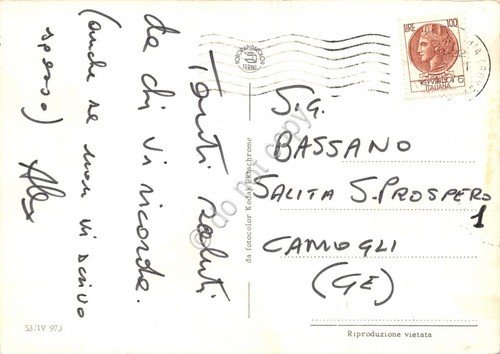 Tanti saluti
da chi vi ricorda.
(anche se non vi scrivo
spesso)
Alex
S.G.
BASSANO
SALITA S. PROSPERO
1
CAMOGLI
(GE)
LIRE 100
REPUBBLICA
ITALIANA
TERNI
da fotocolor Kodak Ektachrome
53/IV 973
Riproduzione vietata
do not copy